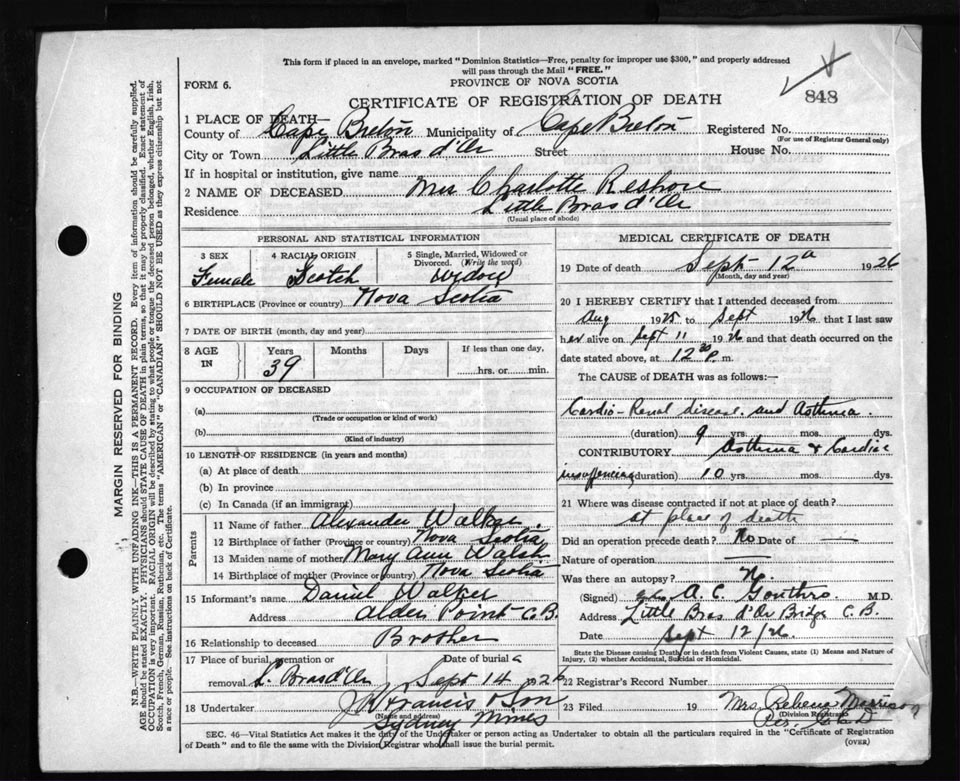 This form if placed in an envelope, marked "Dominion Statistics—Free, penalty for improper use $300," and properly addressed
will pass through the Mail "FREE."
FORM 6.
PROVINCE OF NOVA SCOTIA
848
CERTIFICATE OF REGISTRATION OF DEATH
1 PLACE OF DEATH—
County of Cape Breton Municipality of Cape Breton Registered No.
(For use of Registrar General only)
City or Town Little Bras d'Or Street House No.
If in hospital or institution, give name
2 NAME OF DECEASED Mrs Charlotte
Residence Little Bras d'Or
(Usual place of abode)
PERSONAL AND STATISTICAL INFORMATION
3 SEX 4 RACIAL ORIGIN 5 Single, Married, Widowed or
Divorced. (Write the word)
Female Scotch Widow
6 BIRTHPLACE (Province or country) Nova Scotia
7 DATE OF BIRTH (month, day and year)
8 AGE IN Years Months Days If less than one day,
39 hrs. or min.
9 OCCUPATION OF DECEASED
(a)
(Trade or occupation or kind of work)
(b)
(Kind of industry)
10 LENGTH OF RESIDENCE (in years and months)
(a) At place of death
(b) In province
(c) In Canada (if an immigrant)
Parents
11 Name of father Alexander Walker
12 Birthplace of father (Province or country) Nova Scotia
13 Maiden name of mother Mary Ann Walsh
14 Birthplace of mother (Province or country) Nova Scotia
15 Informant's name Daniel Walker
Address Alder Point C.B.
16 Relationship to deceased Brother
17 Place of burial, cremation or Date of burial
removal L. Bras d'Or Sept 14 1926
18 Undertaker J Francis & Son
(Name and address)
Sydney Mines
MEDICAL CERTIFICATE OF DEATH
19 Date of death Sept 12 1926
(Month, day and year)
20 I HEREBY CERTIFY that I attended deceased from
Aug 1925 to Sept 1926 that I last saw
her alive on Sept 11 1926 and that death occurred on the
date stated above, at 12 30 p.m.
The CAUSE OF DEATH was as follows:—
Cardio-Renal disease and Asthma.
(duration) 9 yrs. mos. dys.
CONTRIBUTORY Asthma & Cardiac
insufficiency (duration) 10 yrs. mos. dys.
21 Where was disease contracted if not at place of death?
at place of death
Did an operation precede death? No Date of —
Nature of operation —
Was there an autopsy? No
(Signed) A. C. Gouthro M.D.
Address Little Bras d'Or Bridge C.B.
Date Sept 12/26.
State the Disease causing Death, or in death from Violent Causes, state (1) Means and Nature of
Injury, (2) whether Accidental, Suicidal or Homicidal.
22 Registrar's Record Number
23 Filed 19 Mrs.
(Division Registrar)
SEC. 46—Vital Statistics Act makes it the duty of the Undertaker or person acting as Undertaker to obtain all the particulars required in the "Certificate of Registration
of Death" and to file the same with the Division Registrar who shall issue the burial permit.
(OVER)
MARGIN RESERVED FOR BINDING
N.B.—WRITE PLAINLY WITH UNFADING INK—THIS IS A PERMANENT RECORD. Every item of information should be carefully supplied.
AGE should be stated EXACTLY. PHYSICIANS should STATE CAUSE OF DEATH in plain terms, so that it may be properly classified. Exact statement of
OCCUPATION is very important. RACIAL ORIGIN will be described by stating to what people or tongue the deceased person belonged, whether English, Irish,
Scotch, French, German, Russian, Ruthenian, etc. The terms "AMERICAN" or "CANADIAN" SHOULD NOT BE USED as they express citizenship but not
a race or people. See instructions on back of Certificate.